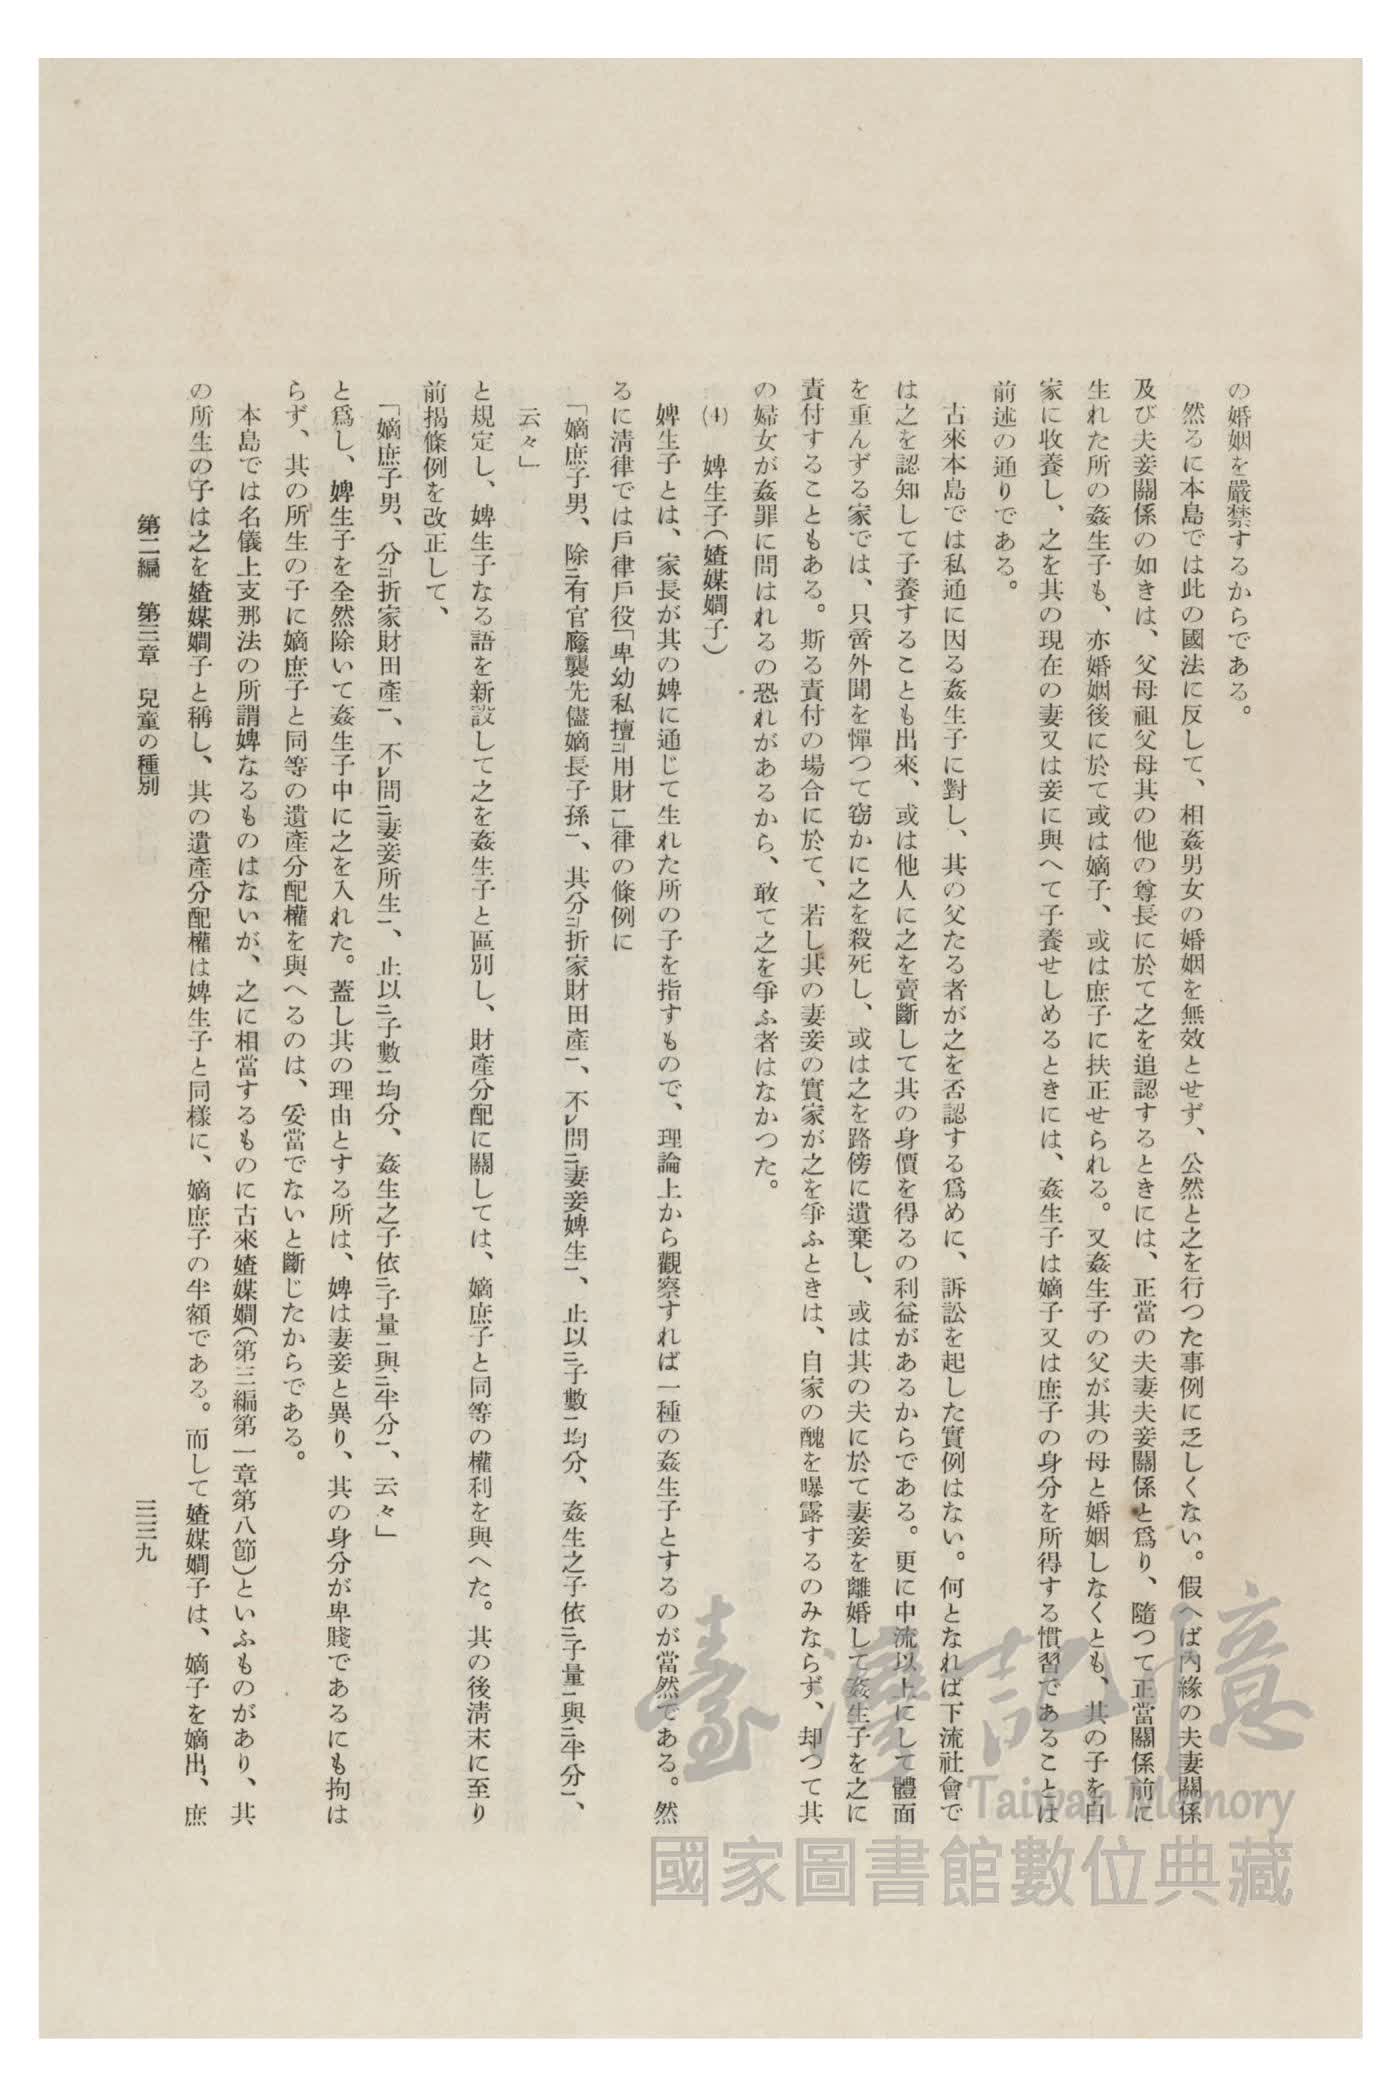 の婚姻を嚴禁するからである。
然るに本島では此の國法に反して、相姦男女の婚姻を無效とせず、公然と之を行つた事例に乏しくない。假へば內緣の夫妻關係
及び夫妾關係の如きは、父母祖父母其の他の尊長に於て之を追認するときには、正當の夫妻夫妾關係と爲り、隨つて正當關係前に
生れた所の姦生子も、亦婚姻後に於て或は嫡子、或は庶子に扶正せられる。又姦生子の父が其の母と婚姻しなくとも、其の子を自
家に收養し、之を其の現在の妻又は妾に與へて子養せしめるときには、姦生子は嫡子又は庶子の身分を所得する慣習であることは
前述の通りである。
古來本島では私通に因る姦生子に對し、其の父たる者が之を否認する爲めに、訴訟を起した實例はない。何となれば下流社會で
は之を認知して子養することも出來、或は他人に之を賣斷して其の身價を得るの利益があるからである。更に中流以上にして體面
を重んずる家では、只啻外聞を憚つて窃かに之を殺死し、或は之を路傍に遺棄し、或は其の夫に於て妻妾を離婚して姦生子を之に
責付することもある。斯る責付の場合に於て、若し其の妻妾の實家が之を爭ふときは、自家の醜を曝露するのみならず、却つて其
の婦女が姦罪に問はれるの恐れがあるから、敢て之を爭ふ者はなかつた。
(4) 婢生子(媎媒嫺子)
婢生子とは、家長が其の婢に通じて生れた所の子を指すもので、理論上から觀察すれば一種の姦生子とするのが當然である。然
るに淸律では戶律戶役「卑幼私擅㆓用財㆒」律の條例に
「嫡庶子男、除㆘有官廕襲先儘嫡長子孫㆒、其分㆓折家財田產㆒、不㆑問㆓妻妾婢生㆒、止以㆓子數㆒均分、姦生之子依㆓子量㆒與㆓半分㆒、
云々」
と規定し、婢生子なる語を新設して之を姦生子と區別し、財產分配に關しては、嫡庶子と同等の權利を與へた。其の後淸末に至り
前揭條例を改正して、
「嫡庶子男、分㆓折家財田產㆒、不㆑問㆓妻妾所生㆒、止以㆓子數㆒均分、姦生之子依㆓子量㆒與㆓半分㆒、云々」
と爲し、婢生子を全然除いて姦生子中に之を入れた。蓋し其の理由とする所は、婢は妻妾と異り、其の身分が卑賤であるにも拘は
らず、其の所生の子に嫡庶子と同等の遺產分配權を與へるのは、妥當でないと斷じたからである。
本島では名儀上支那法の所謂婢なるものはないが、之に相當するものに古來媎媒嫺(第三編第一章第八節)といふものがあり、其
の所生の子は之を媎媒嫺子と稱し、其の遺產分配權は婢生子と同樣に、嫡庶子の半額である。而して媎媒嫺子は、嫡子を嫡出、庶
第二編 第三章 兒童の種別
三三九
臺灣記憶
Taiwan Memory
國家圖書館數位典藏